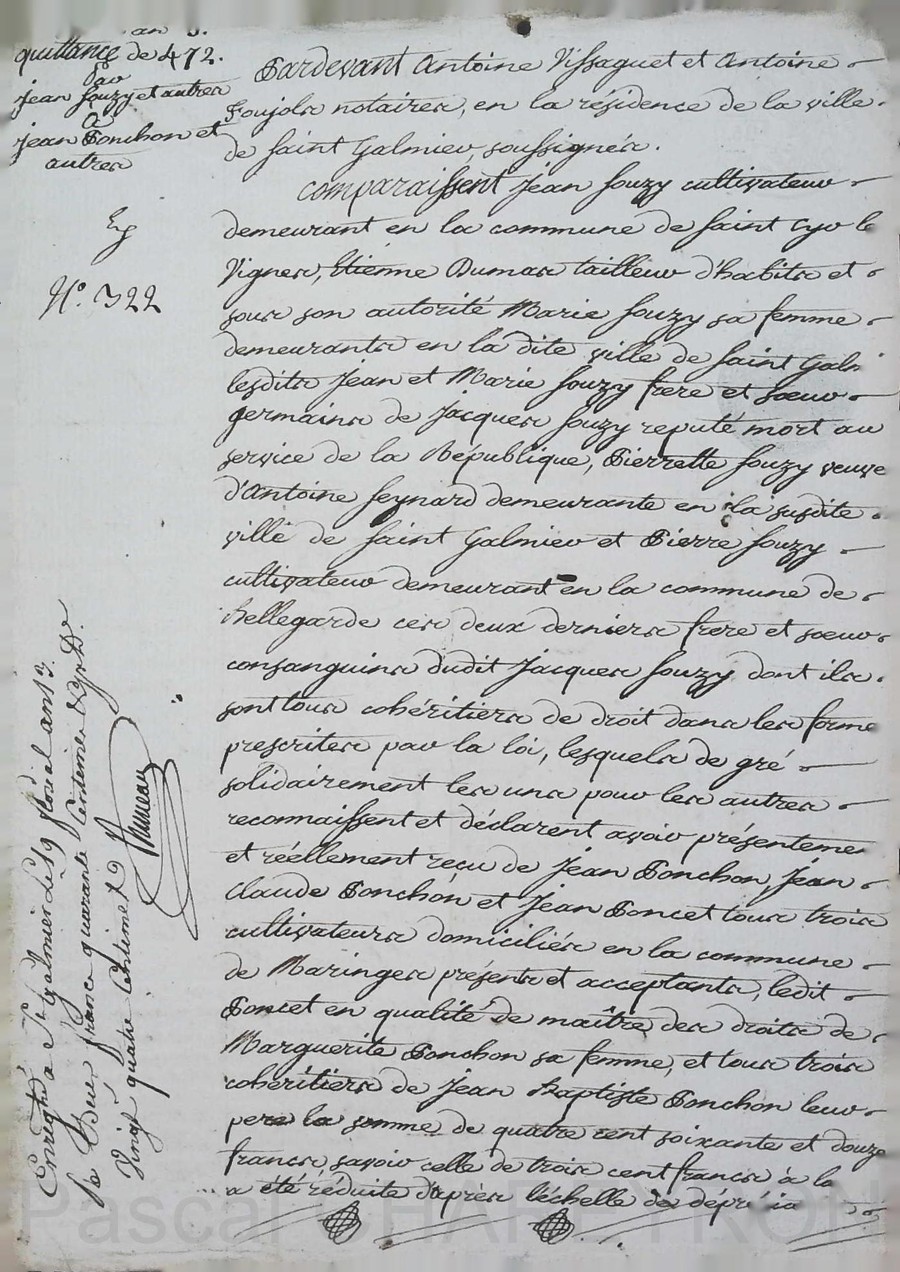 an 3.
quittance de 472.
par
jean souzy et autres
a
jean Ponchon et
autres
N.º 322
Pardevant Antoine Vissaguet et Antoine
Poujols notaires, en la résidence de la ville
de saint Galmier, soussignés.
comparaissent Jean souzy cultivateur
demeurant en la commune de saint Cyr le
Vignes, Etienne Dumas tailleur d'habits et
sous son autorité Marie souzy sa femme
demeurants en la dite ville de saint Galm
lesdits Jean et Marie souzy frere et soeur
germains de Jacques souzy reputé mort au
service de la République, Pierrette souzy veuve
d'Antoine seynard demeurante en la susdite
ville de saint Galmier et Pierre souzy
cultivateur demeurant en la commune de
bellegarde ces deux derniers frere et soeur
consanguins dudit Jacques souzy dont ils
sont tous cohéritiers de droit dans les forme
prescrites par la loi, lesquels de gré
solidairement les uns pour les autres
reconnaissent et déclarent avoir présenteme
et réellement reçu de Jean Ponchon, Jean
Claude Ponchon et Jean Poncet tous trois
cultivateurs domiciliés en la commune
de Maringes présents et acceptants, ledit
Poncet en qualité de maître des droits de
Marguerite Ponchon sa femme, et tous trois
cohéritiers de Jean Baptiste Ponchon leur
pere la somme de quatre cent soixante et douze
francs, savoir celle de trois cent francs à la
a été réduite d'après l'échelle de dépréia
Enregtré a St Galmier le 19 floréal an 13
Re Deux francs quarante Centimes
Vingt quatre Centimes
Pascal CHAREYRON